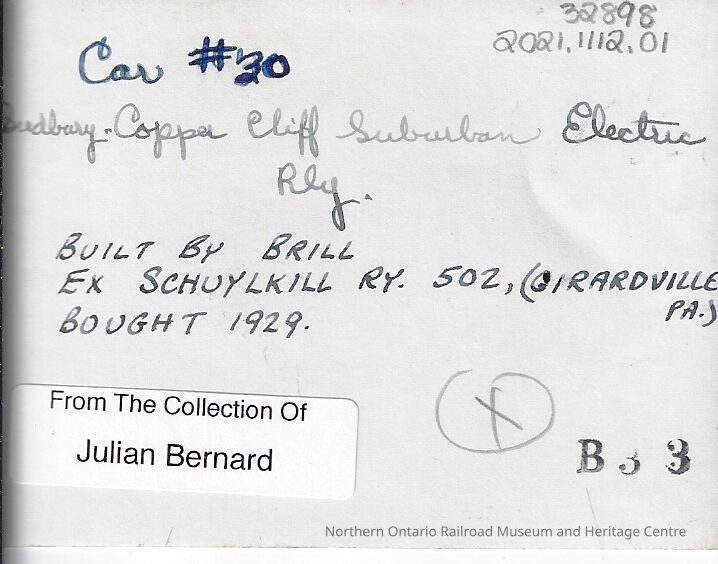 32898
2021.1112.01
Car #30
Sudbury-Copper Cliff Suburban Electric
Rly.
BUILT BY BRILL
EX SCHUYLKILL RY. 502, (GIRARDVILLE
PA.)
BOUGHT 1929.
From The Collection Of
Julian Bernard
X
B33
Northern Ontario Railroad Museum and Heritage Centre